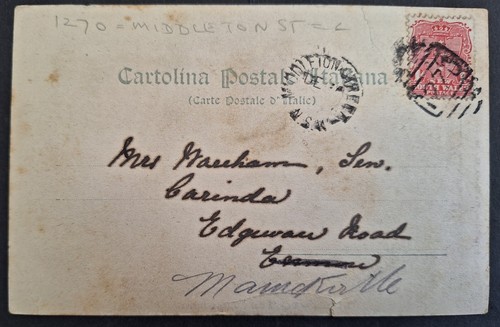 1270 - MIDDLETON ST = C
Cartolina Postale Italiana
(Carte Postale d'Italie)
MIDDLETON
N.S.W
Mrs Wareham, Sen.
Carinda
Edgware Road
Enmore
Marrickville